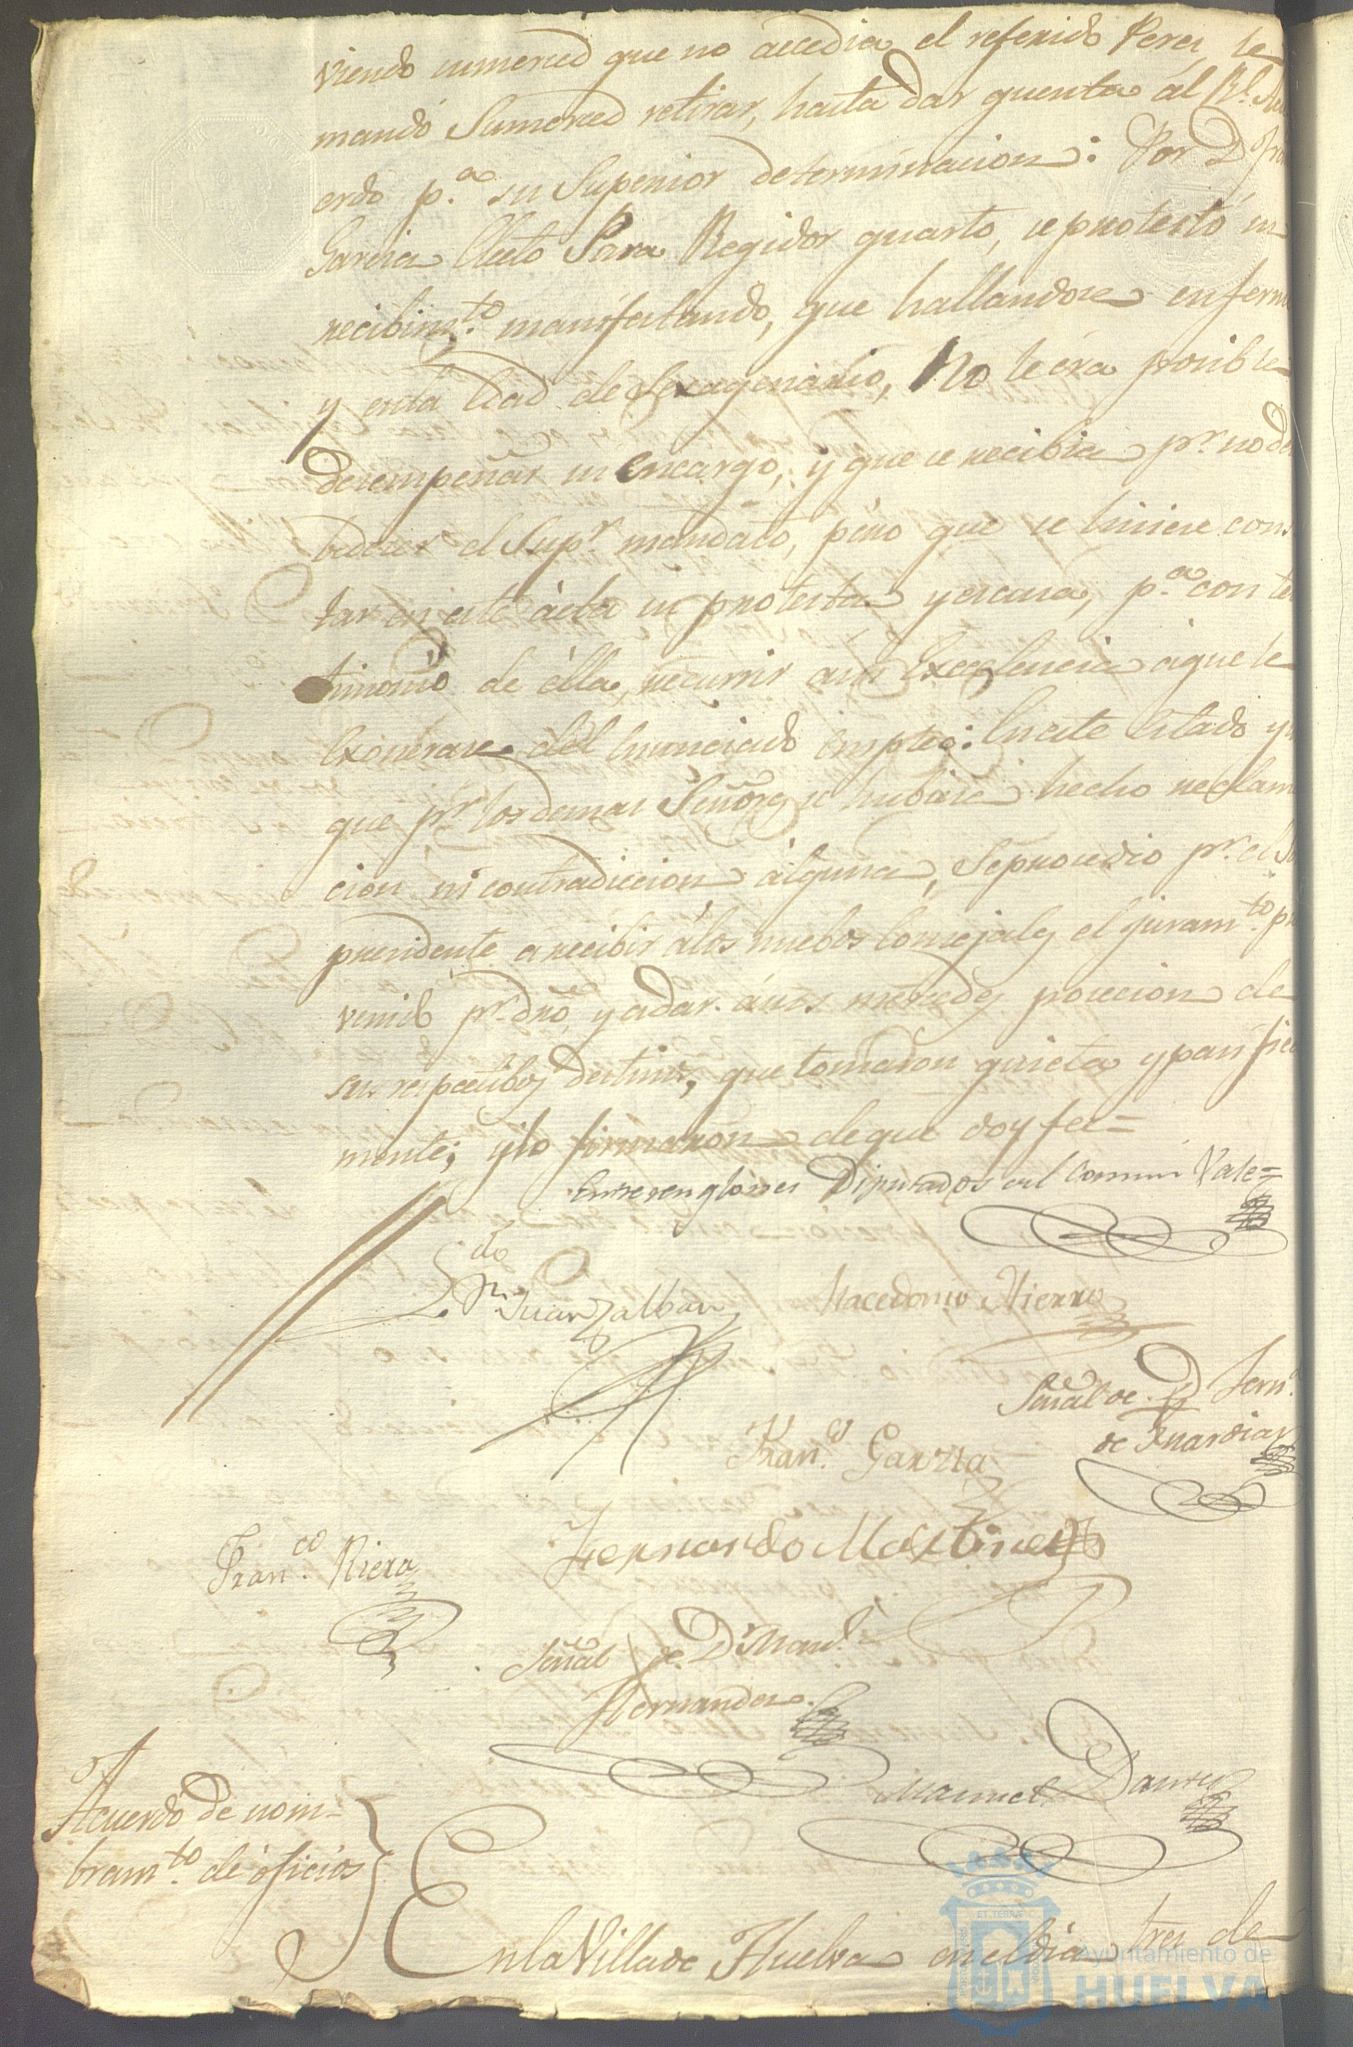 viendo sumerced que no accedia el referido Perez, le
mandó Sumerced retirar, hasta dar quenta ál Rl. Acu
erdo p.a su Superior determinacion: Por Dn Fran
Garcia Electo Para Regidor quarto, se protestó su
recibim.to manifestando, que hallandose enfermo
y enla Edad de Sexagenario, No le era posible
desempeñar su encargo, y que se recibia pr. no deso
bedecer el Supr. mandato, pero que se hiciese cons
tar en este ácta su protesta y escusa, p.a con tes
timonio de élla, recurrir a su Excelencia áque le
Exonerase del enunciado empleo: En este Estado y sin
que pr. los demas Señores se hubiese hecho reclama
cion ni contradiccion álguna, Se procedio pr. el Sor
presidente a recibir álos nuebos Concejales el juram.to pre
venido pr. dro, y a dar. ásus mercedes posecion de
sus respectibos destinos, que tomaron quieta y pasifica
mente; y lo firmaron de que doy fee=
Entrerenglones Diputados del Comun Vale=
Ldo Dn Juan Zalban
Macedonio Hierro
Señal de D. Fern.
de Guardiar
Fran.co Garzia
Fernando Martinez
Fran.co Riera
Señal de Dn Manl.
Hernandez.
Manuel
Acuerdo de nom=
bram.to de óficios
En la Villa de Huelva en el dia tres de
ET TERRA
Ayuntamiento de
HUELVA